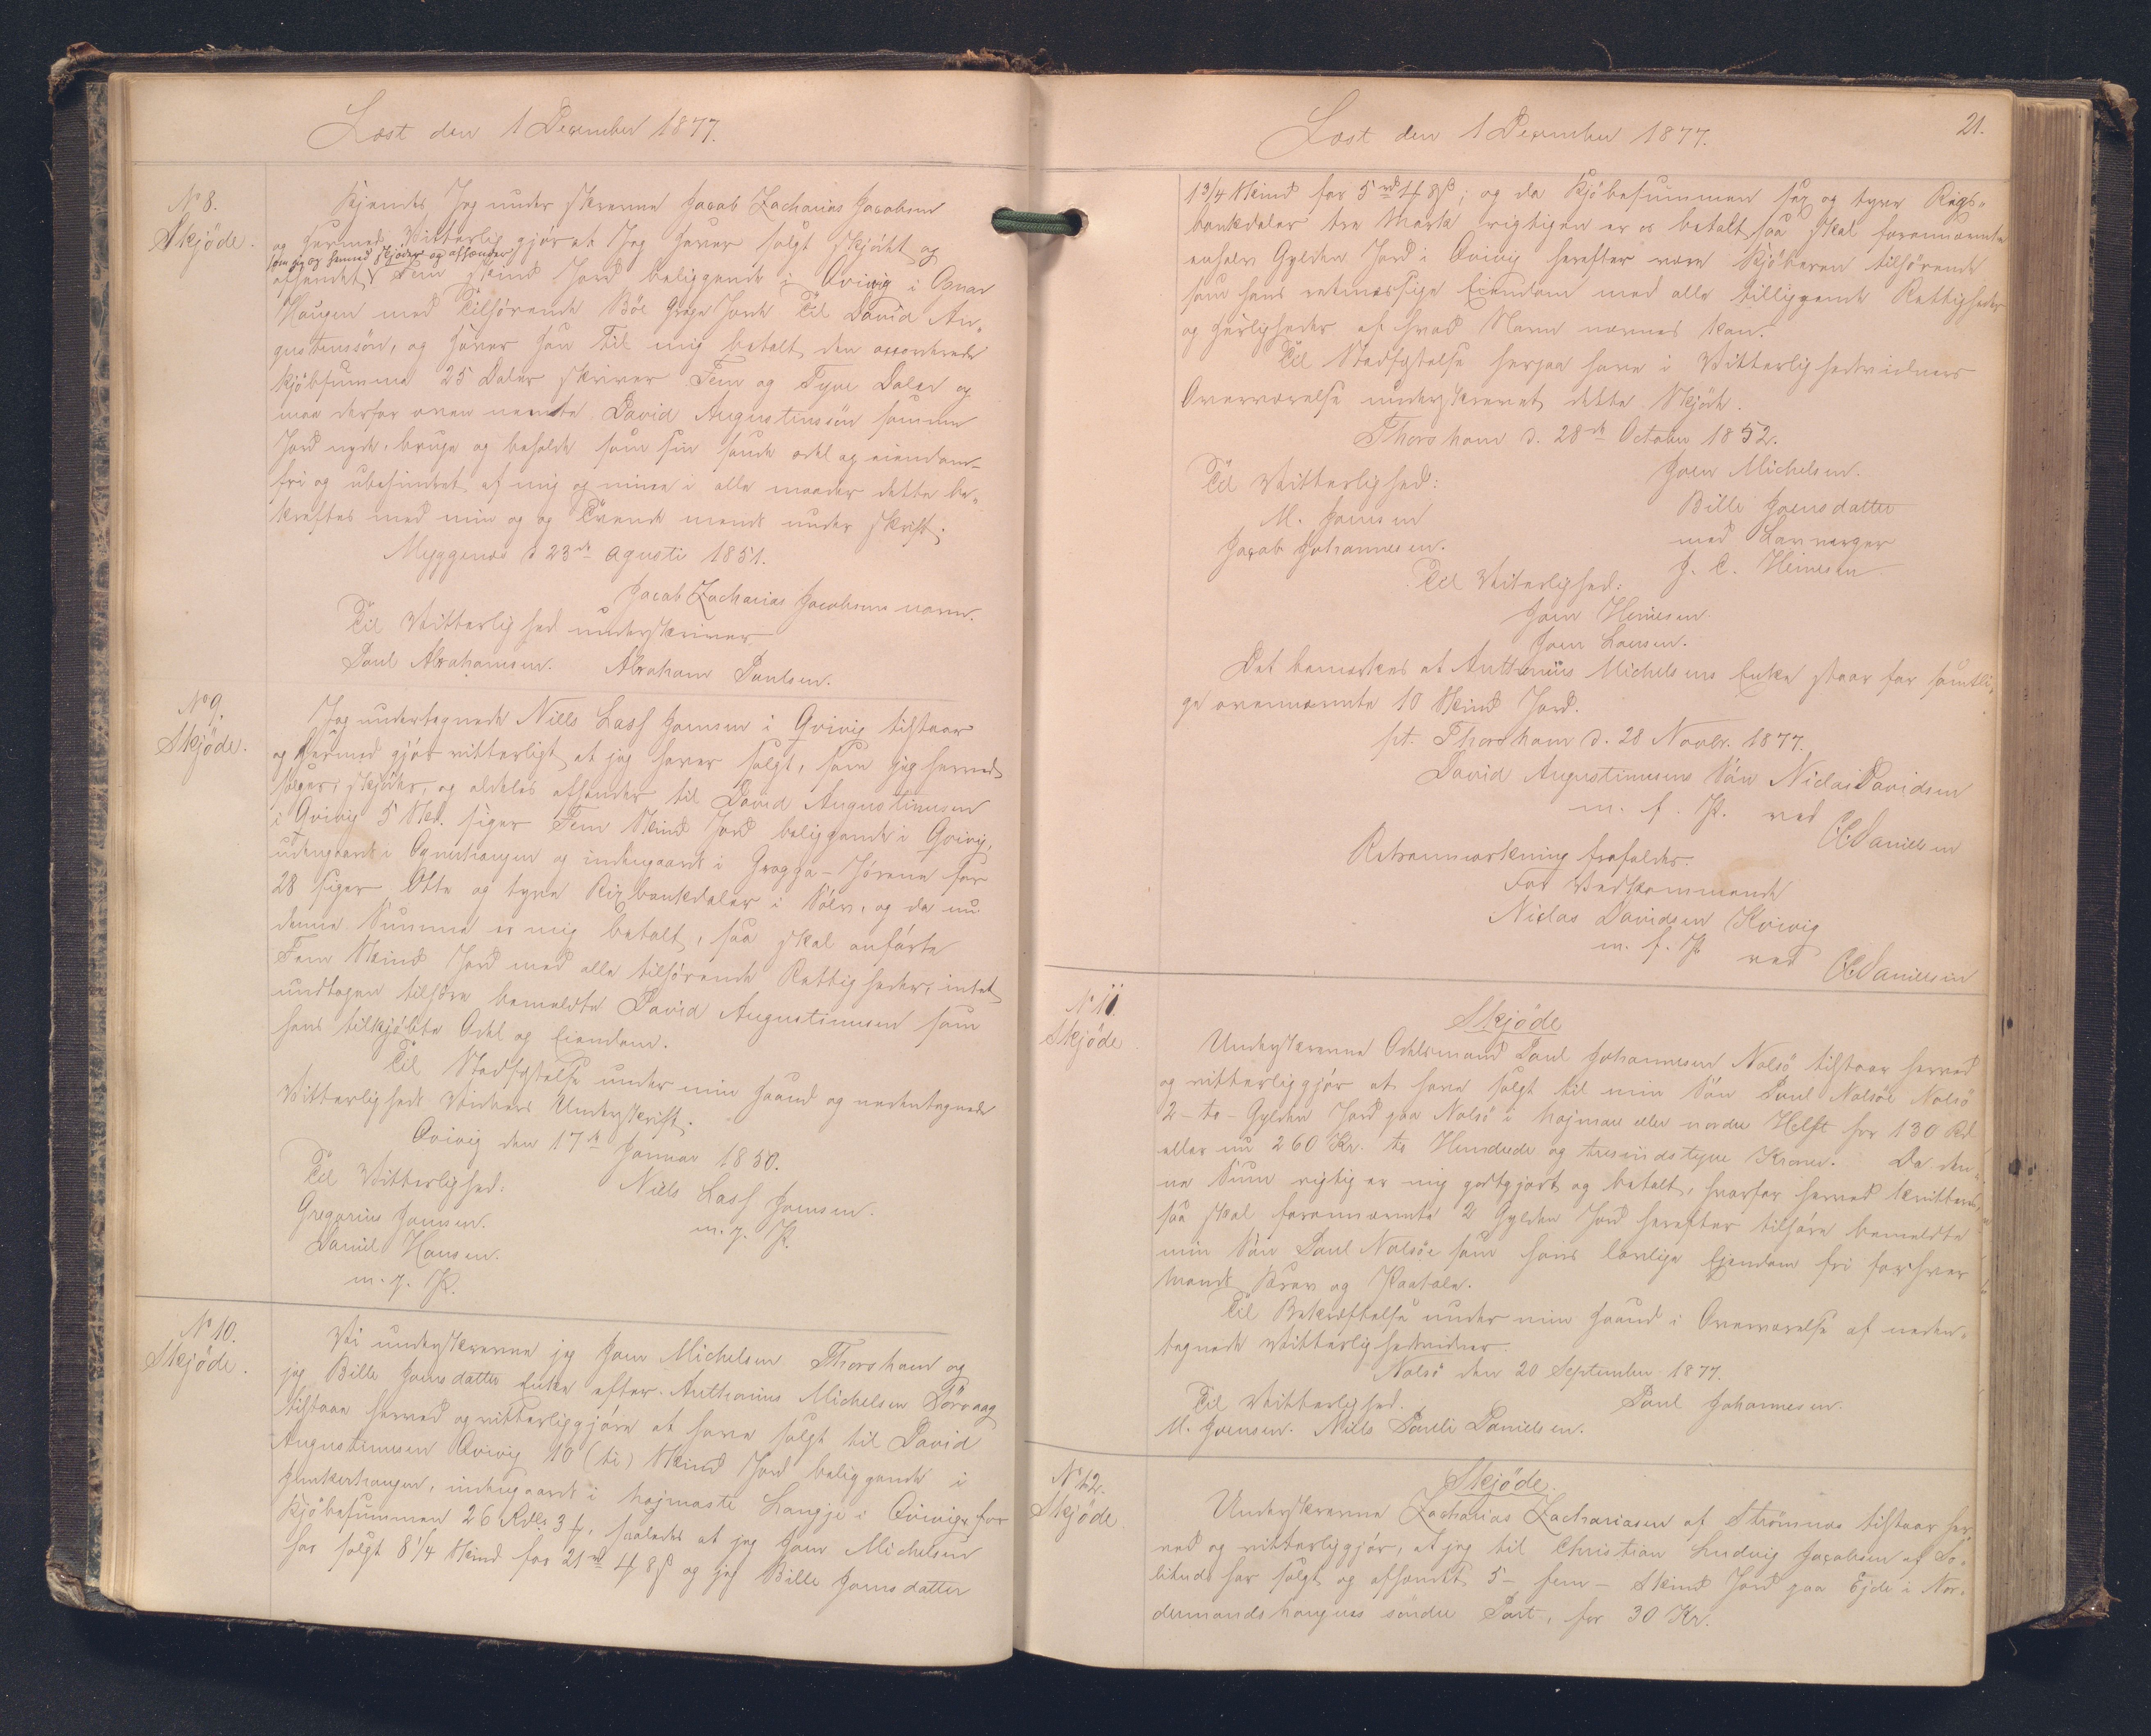 Læst den 1 December 1877.
No 8.
Skjöde.
Kjendes Jeg under skrevne Jacob Zacharias Jacobsen
og hermed Vitterlig gjör at Jeg haver solgt skjödet og
som jeg og hermed skjöder og afhænder
afhændet Fem skind Jord beliggende i Qvivig i Ognar
Haugen med Tilhörende Böe Grøga Jorde Til David Au-
gustinussön, og haver han Til mig betalt den accorderede
kjöbsumma 25 Daler skriver Fem og Tyve Daler og
maa derfor oven nemte David Augustinussön samme
Jord nyde, bruge og beholde som sin sande odel og eiendom-
fri og ubehindret af mig og mine i alle maader dette be-
kræftes med min og og Tvende mends under skrift.
Myggenæs d 23de Agusti 1851.
Jacob Zacharias Jacobsens navn.
Til Vitterlighed underskriver
Poul Abrahamsen. Abraham Poulsen.
No 9.
Skjöde.
Jeg undertegnede Niels Lass Joensen i Qvivig tilstaar
og hermed gjör vitterligt at jeg haver solgt, som jeg herved
sælger, skjöder, og aldeles afhænder til David Augustinusen
i Qvivig 5 Skd. siger Fem Skind Jord beliggende i Qvivig,
udengaards i Ognerhaugen og indengaards i Grogga-Jörene for
28 siger Otte og tyve Rixbankdaler i Sölv, og da nu
denne Summa er mig betalt, saa skal anförte
Fem Skind Jord med alle tilhörende Rettigheder, intet
undtagen tilhöre bemeldte David Augustinusen som
hans tilkjöbte Odel og Eiendom.
Til Stadfæstelse under min Haand og nedentegnede
Vitterligheds Vidners Underskrift.
Qvivig den 17de Januar 1850.
Til Vitterlighed: Niels Lass Joensen.
Gregorius Joensen. m. f. P.
Daniel Hansen.
m. f. P.
No 10.
Skjöde.
Vi underskrevne jeg Joen Michelsen Thorshavn og
jeg Bille Joensdatter Enke efter Anthonius Michelsen
tilstaae herved og vitterliggjöre at have solgt til David
Augustinusen Qvivig 10 (ti) Skind Jord beliggende i
Junkerhaugen, indengaards i højmaste Langje i Qvivig for
Kjöbesummen 26 Rdlr 3 ꝟ, saaledes at jeg Joen Michelsen
har solgt 8 1/4 Skind for 21 rd 4 ꝟ 8 ß og jeg Bille Joensdatter
Læst den 1 December 1877.
21.
1 3/4 Skind for 5 rd 4 ꝟ 8 ß; og da Kjöbesummen sex og tyve Rigs-
bankdaler tre Mark rigtigen er os betalt saa skal forannævnte
enhalv Gylden Jord i Qvivig herefter være Kjöberen tilhörende
som hans retmæssige Eiendom med alle tilliggende Rettigheder
og Herligheder af hvad Navn nævnes kan.
Til Stadfæstelse herpaa have i Vitterlighedsvidners
Overværelse underskrevet dette Skjöde.
Thorshavn d. 28de October 1852.
Til Vitterlighed: Joen Michelsen.
M. Joensen Bille Joensdatter
Jacob Johannesen. med Lavværger
J. C. Heinesen
Til Vitterlighed:
Joen Heinesen
Joen Larsen.
Det bemærkes at Anthonius Michelsens Enke staar for samtli-
ge ovennævnte 10 Skind Jord.
pt. Thorshavn d. 28 Novbr. 1877.
David Augustinusens Sön Niclas Davidsen
m. f. P. ved
Danielsen
Retranmærkning frafaldes.
For Vedkommende
Niclas Davidsen Kvivig
m. f. P. ved
Danielsen
No 11.
Skjöde
Skjöde
Underskrevne Odelsmand Poul Johannesen Nolsö tilstaar herved
og vitterliggjör at have solgt til min Sön Poul Nolsöe Nolsö
2 - to - Gylden Jord paa Nolsö i højmare eller nordre Helft for 130 Rd
eller nu 260 Kr. to Hundrede og tresindstyve Kroner. Da den-
ne Sum rigtig er mig godtgjort og betalt, hvorfor herved kvitteres,
saa skal forannævnte 2 Gylden Jord herefter tilhöre bemeldte
min Sön Poul Nolsöe som hans lovlige Ejendom fri for hver
Mands Krav og Paatale.
Til Bekræftelse under min Haand i Overværelse af neden-
tegnede Vitterlighedsvidner.
Nolsö den 20 September 1877.
Til Vitterlighed. Poul Johannesen.
M. Joensen. Niels Pauli Danielsen.
No 12.
Skjöde
Skjöde.
Underskrevne Zacharias Zachariasen af Strömnæs tilstaar her-
ved og vitterliggjör, at jeg til Christian Ludvig Jacobsen af So-
litude har solgt og afhændet 5 - fem - Skind Jord paa Ejde i Nor-
dermandshaugens söndre Part, for 30 Kr.